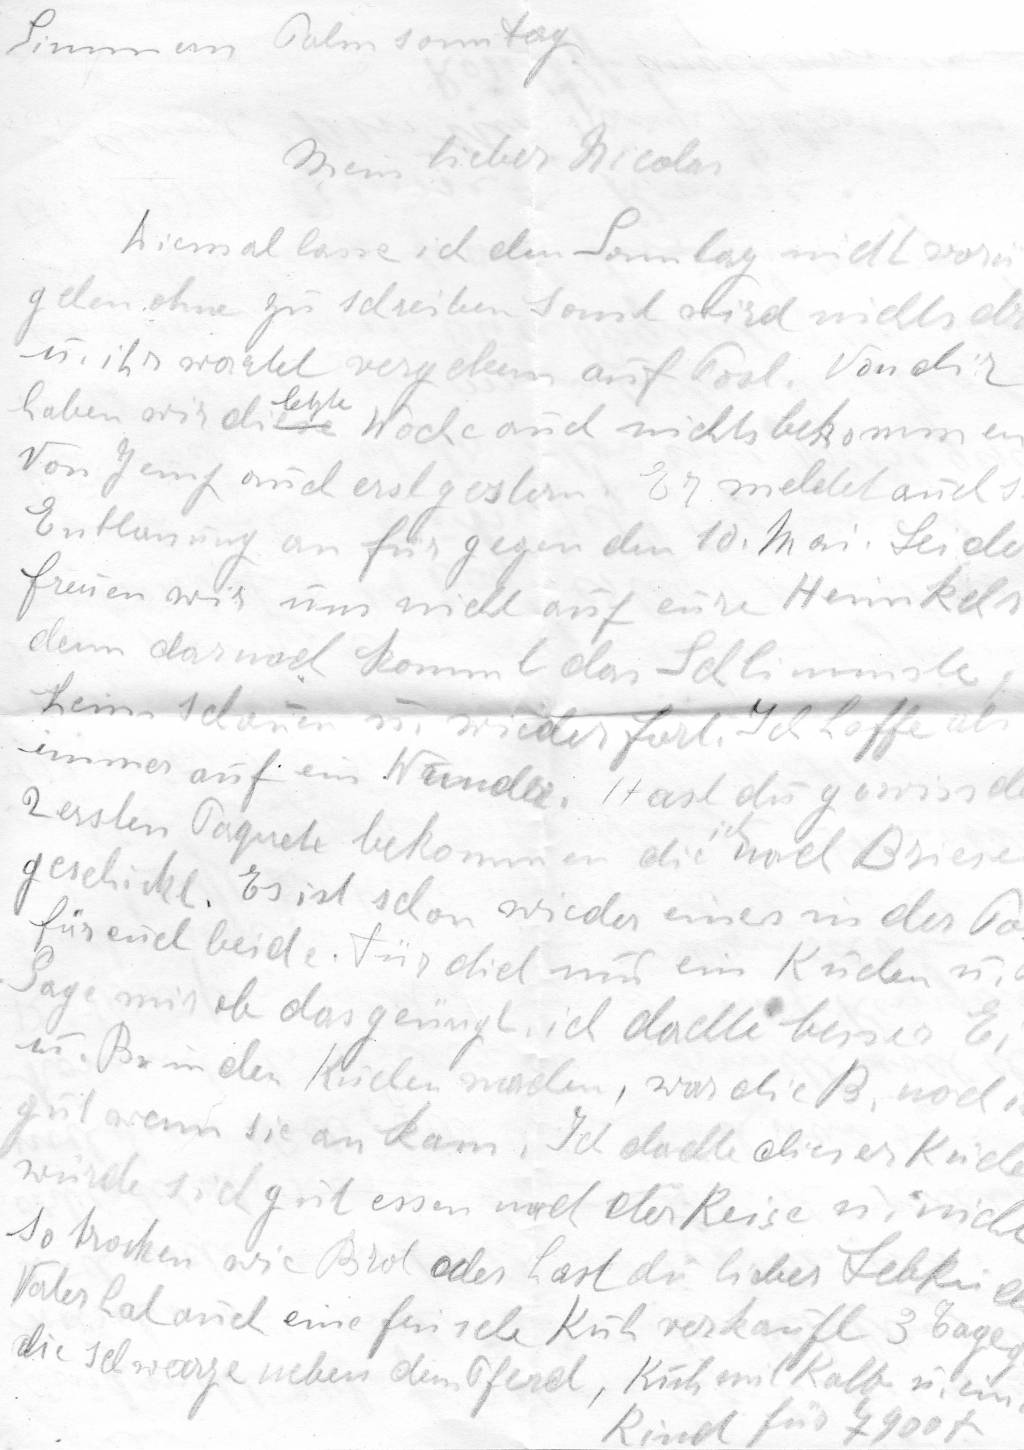 Simmern Palmsonntag.
Mein lieber Nicolas
Niemal lasse ich den Sonntag nicht vorü
gehen ohne zu schreiben sonst wird nichts dr
u. ihr wartet vergebens auf Post. Von dir
haben wir die letzte Woche auch nichts bekommen
Von Jemp auch erst gestern. Er meldet auch s
Entlassung an für gegen den 10. Mai. Leider
freuen wir uns nicht auf eure Heimkehr
denn darnach kommt das Schlimmste,
heim schauen u. wieder fort. Ich hoffe als
immer auf ein Wunder. Hast du gewiss d
2 ersten Paquete bekommen die ich nach Briese
geschickt. Es ist schon wieder eines in der Po
für euch beide. Für dich nur ein Kuchen u.
Sage mir ob das genügt, ich dachte besser Ei
u. B. in den Kuchen machen, war die B. noch
gut wenn sie an kam. Ich dachte dieser Kuche
würde sich gut essen nach der Reise u. nicht
so trocken wie Brot oder hast du lieber Lebkuch
Vater hat auch eine frische Kuh verkauft 3 Tage
die schwarze neben dem Pferd, Kuh mit Kalb u. ein
Rind für 7900 f